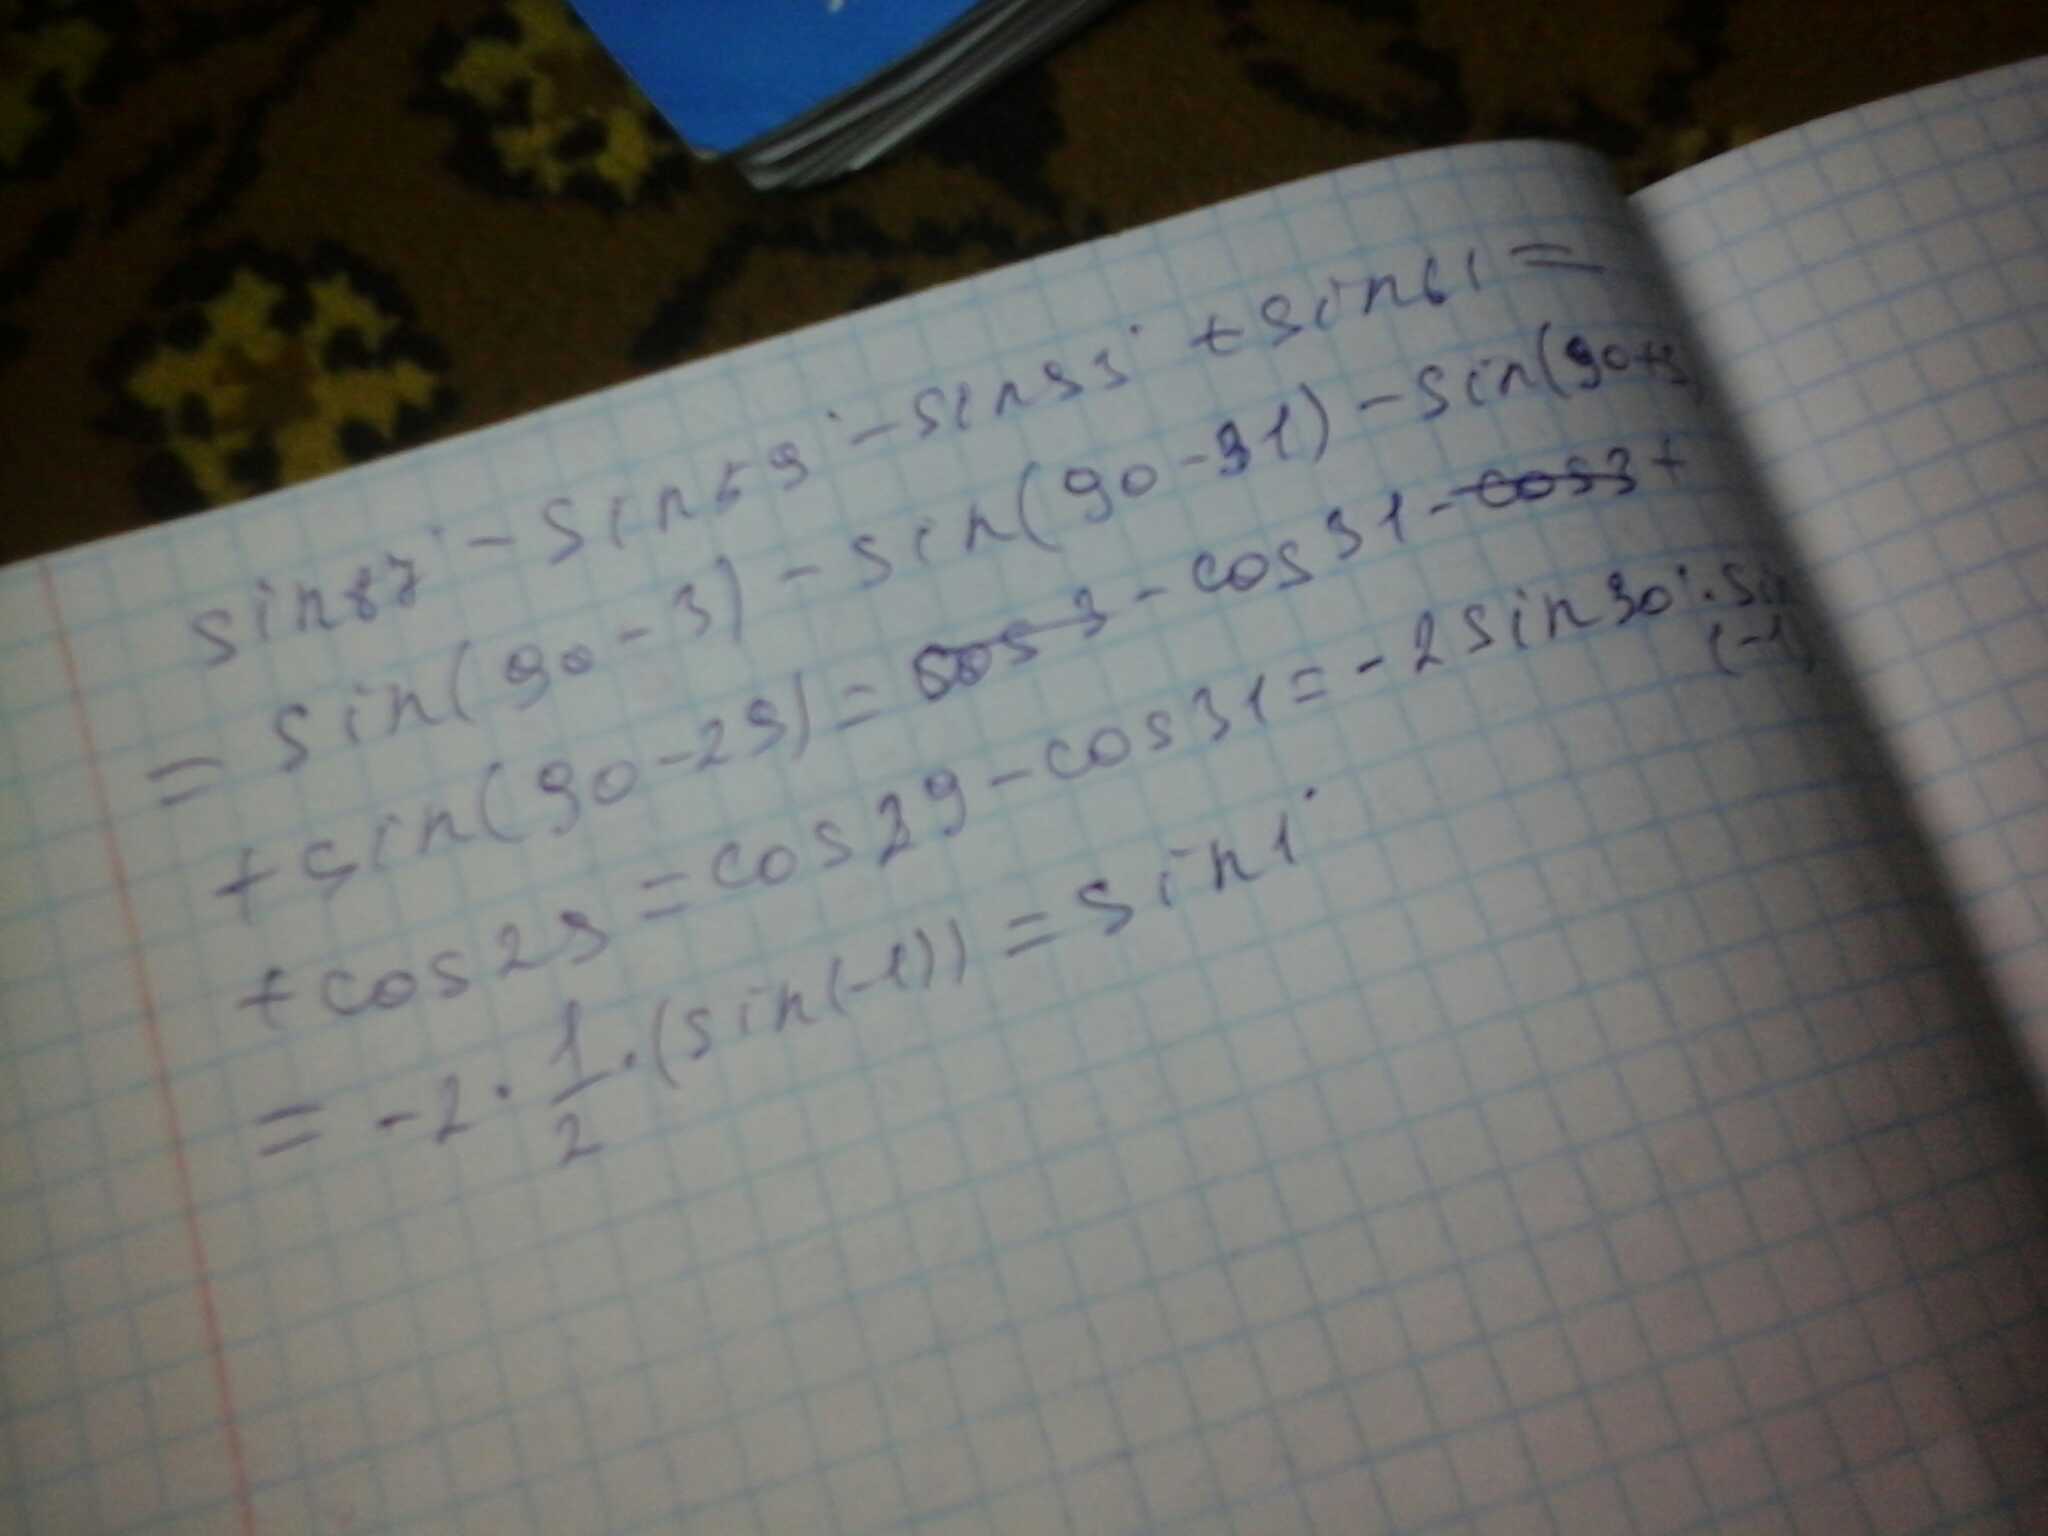 sin87° - sin59° - sin93° + sin61 =
= sin(90 - 3) - sin(90 - 31) - sin(90+3)
+ sin(90 - 29) = cos3 - cos31 - cos3 +
+ cos29 = cos29 - cos31 = - 2sin30° ·
(-1)
= -2 · 1/2 · (sin(-1)) = sin1°